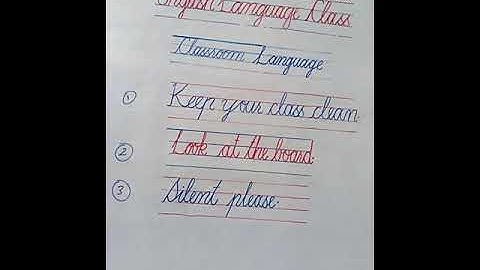 English Language Class
Classroom Language
① Keep your class clean.
② Look at the board.
③ Silent please.